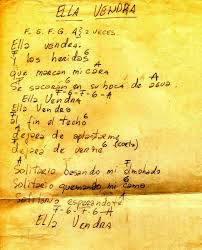 ELLA VENDRA
F. G. F. G. A} 2 VECES
Ella vendra.
F G
Y las heridas
que marcan mi cara
G A
Se secaran en su boca de agua
F-G-F-G-A
Ella Vendra
Ella Vendra
F G
al fin el techo
A
dejara de aplastarme
F G (coda)
dejara de verme
F A
Solitario besando mi almohada
F A
Solitario quemando mi cama
F G A
Solitario esperandote
F-G-F-G-A
Ella Vendra